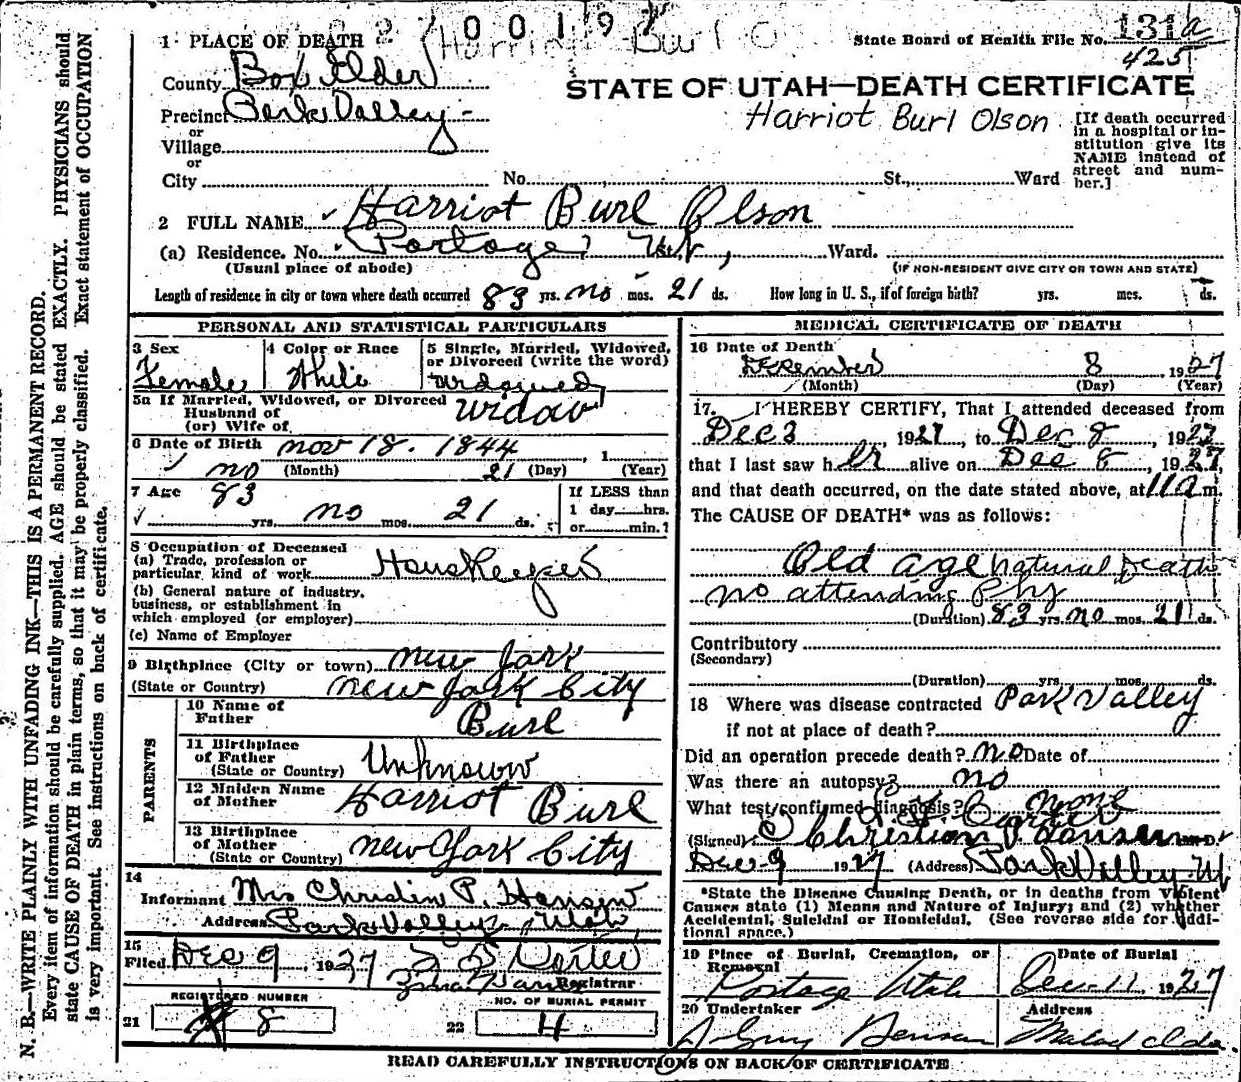 00197
Harriot Burl O
State Board of Health File No. 131a
425
1 PLACE OF DEATH
County Box Elder
STATE OF UTAH—DEATH CERTIFICATE
Precinct Park Valley
Harriot Burl Olson
or
Village
or
City No. St., Ward
[If death occurred
in a hospital or in-
stitution give its
NAME instead of
street and num-
ber.]
2 FULL NAME Harriot Burl Olson
(a) Residence. No. Portage, Ut, St., Ward.
(Usual place of abode) (IF NON-RESIDENT GIVE CITY OR TOWN AND STATE)
Length of residence in city or town where death occurred 83 yrs. no mos. 21 ds. How long in U. S., if of foreign birth? yrs. mos. ds.
PERSONAL AND STATISTICAL PARTICULARS
3 Sex
Female
4 Color or Race
White
5 Single, Married, Widowed,
or Divorced (write the word)
widowed
5a If Married, Widowed, or Divorced
Husband of
(or) Wife of
widow
6 Date of Birth Nov 18. 1844, 1
no (Month) 21 (Day) (Year)
7 Age 83
yrs. no mos. 21 ds.
If LESS than
1 day hrs.
or min.?
8 Occupation of Deceased
(a) Trade, profession or
particular kind of work Houskeeper
(b) General nature of industry,
business, or establishment in
which employed (or employer)
(c) Name of Employer
9 Birthplace (City or town) New York
(State or Country) New York City
PARENTS
10 Name of
Father Burl
11 Birthplace
of Father
(State or Country) Unknown
12 Maiden Name
of Mother Harriot Burl
13 Birthplace
of Mother
(State or Country) New York City
14
Informant Mrs Christin P. Hansen
Address Park Valley, Utah
15
Filed Dec 9, 1927
Registrar
REGISTERED NUMBER
21 8
NO. OF BURIAL PERMIT
22 4
MEDICAL CERTIFICATE OF DEATH
16 Date of Death
December 8, 1927
(Month) (Day) (Year)
17. I HEREBY CERTIFY, That I attended deceased from
Dec 3, 1927, to Dec 8, 1927
that I last saw her alive on Dec 8, 1927,
and that death occurred, on the date stated above, at 11 a m.
The CAUSE OF DEATH* was as follows:
Old age Natural Death
no attending Phy
(Duration) 83 yrs. no mos. 21 ds.
Contributory
(Secondary)
(Duration) yrs. mos. ds.
18 Where was disease contracted Park Valley
if not at place of death?
Did an operation precede death? no Date of
Was there an autopsy? no
What test confirmed diagnosis? none
(Signed) Christian P Hansen M. D.
Dec 9 1927 (Address) Park Valley Ut
*State the Disease Causing Death, or in deaths from Violent
Causes state (1) Means and Nature of Injury; and (2) whether
Accidental, Suicidal or Homicidal. (See reverse side for addi-
tional space.)
19 Place of Burial, Cremation, or
Removal
Portage Utah
Date of Burial
Dec 11 1927
20 Undertaker
Guy Benson
Address
Malad Ida.
READ CAREFULLY INSTRUCTIONS ON BACK OF CERTIFICATE
N. B.—WRITE PLAINLY WITH UNFADING INK—THIS IS A PERMANENT RECORD.
Every item of information should be carefully supplied. AGE should be stated EXACTLY. PHYSICIANS should
state CAUSE OF DEATH in plain terms, so that it may be properly classified. Exact statement of OCCUPATION
is very important. See instructions on back of certificate.